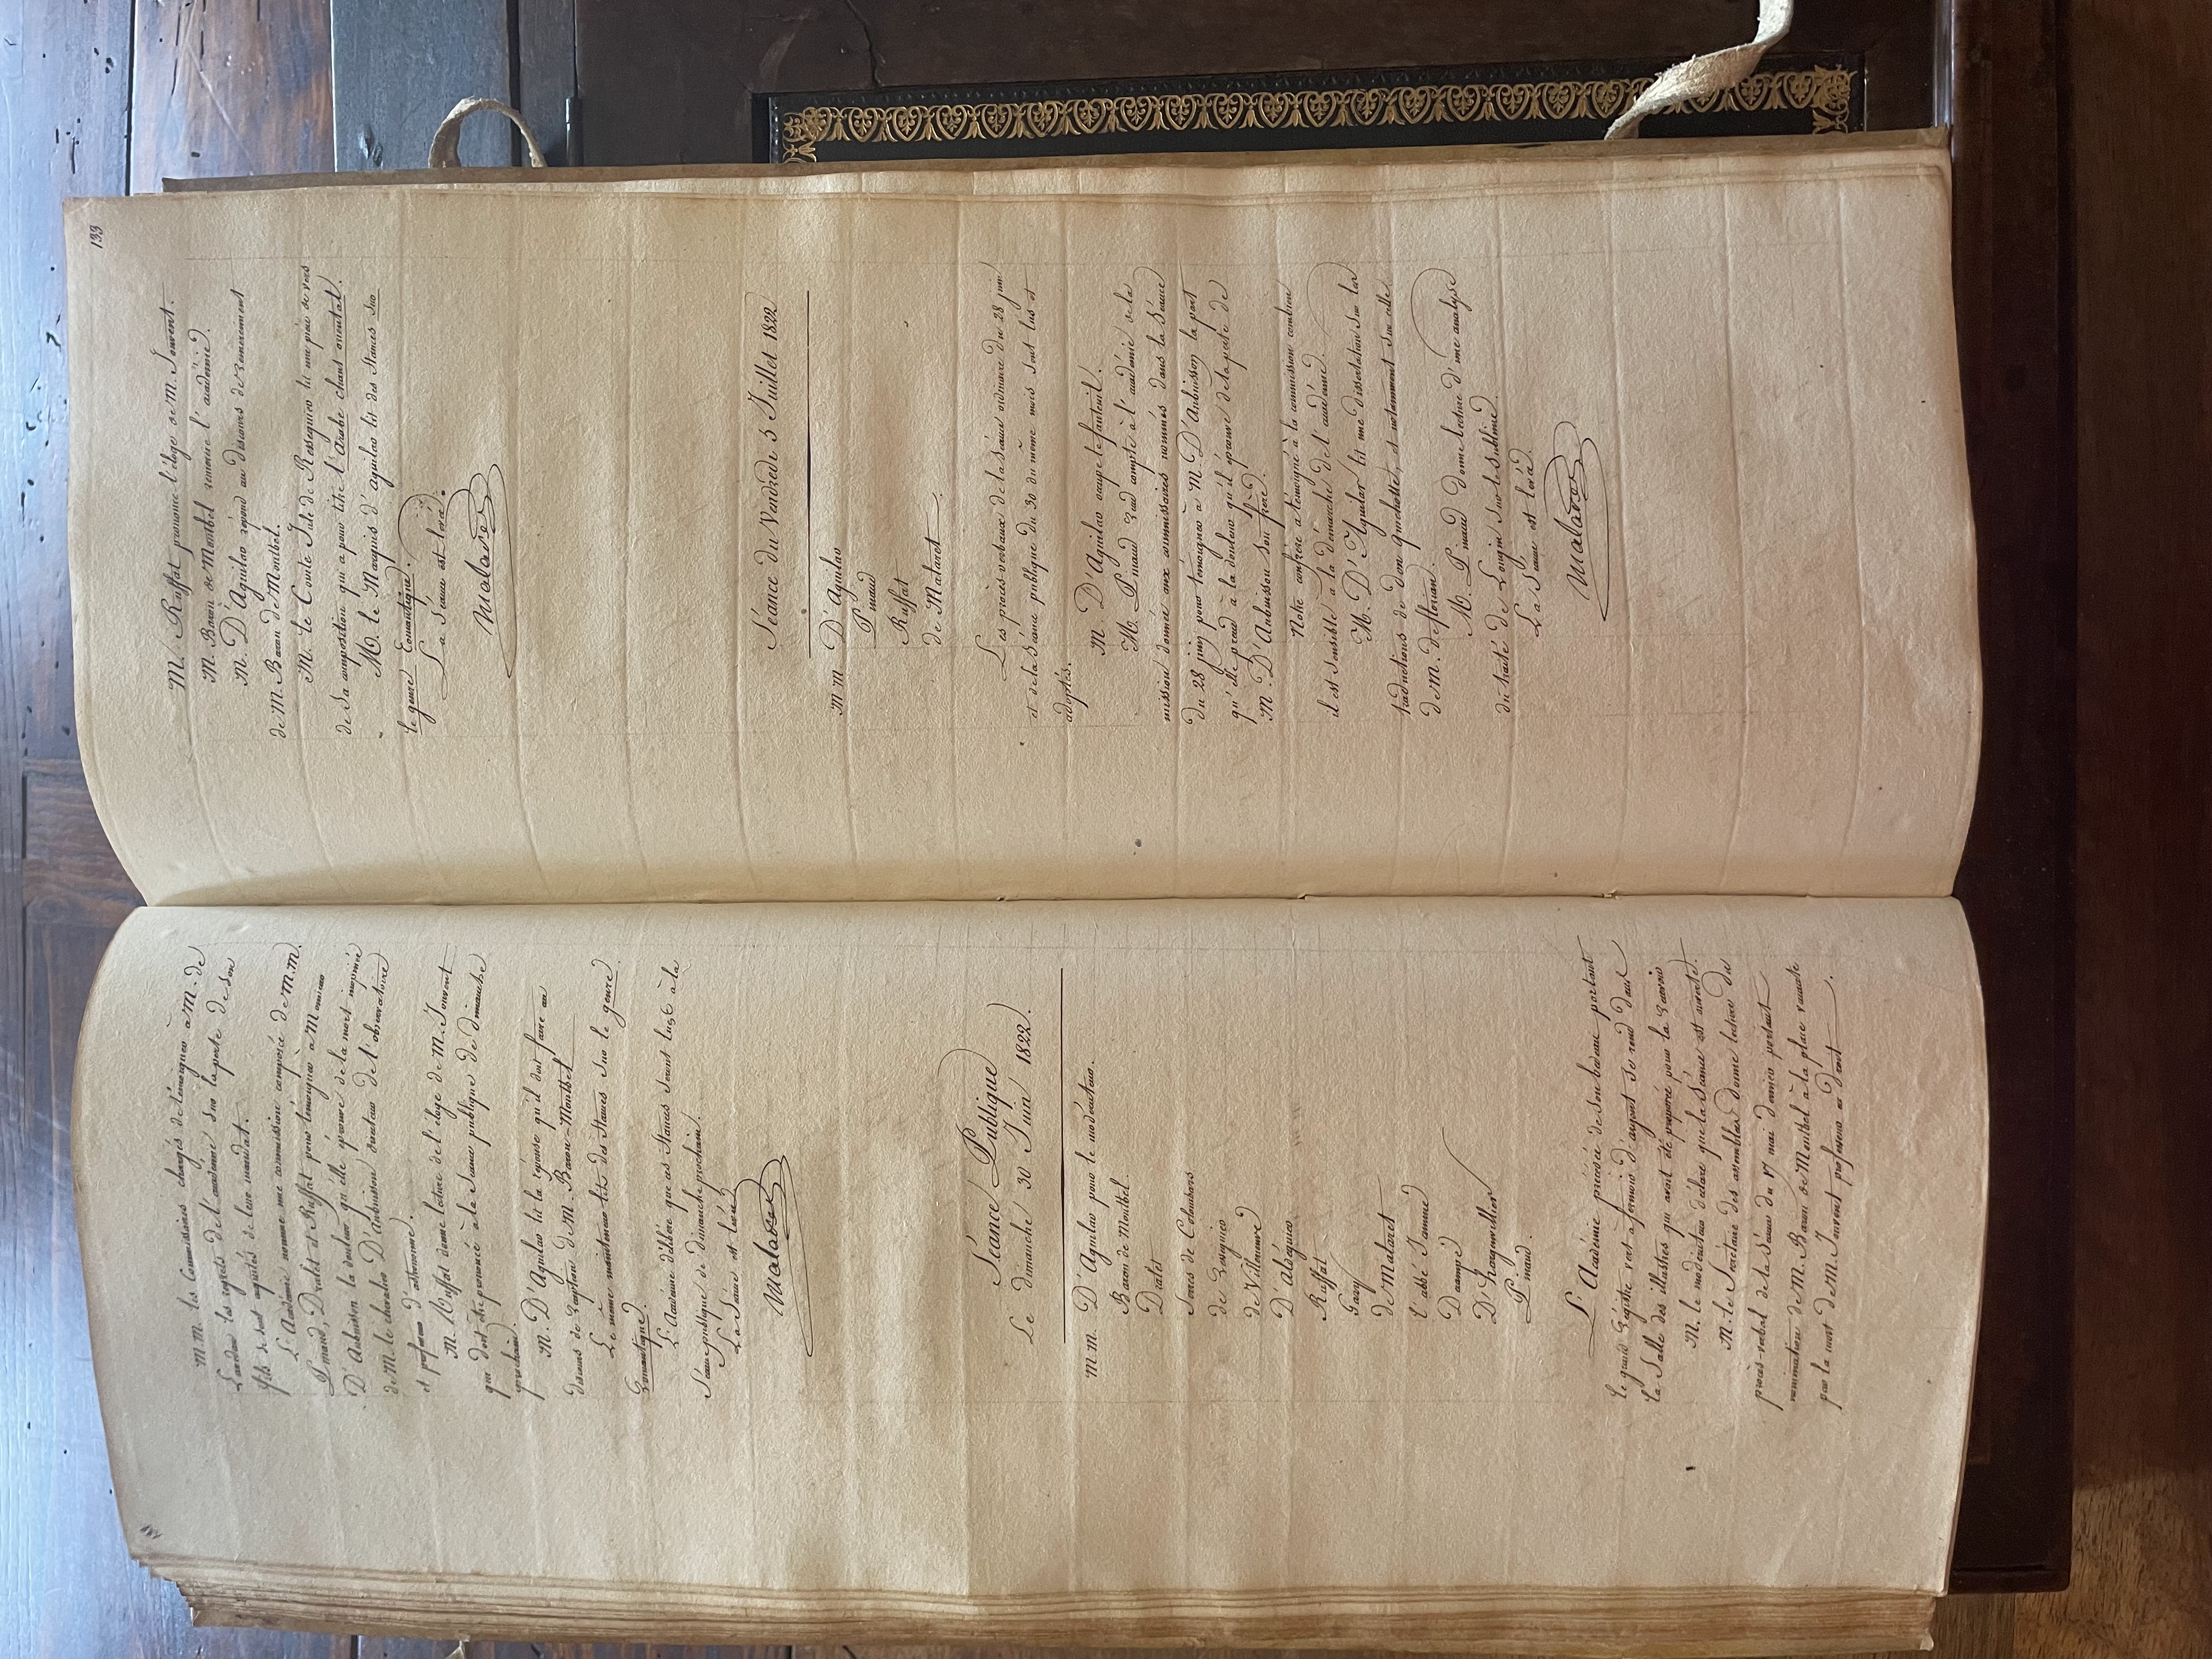 M.M. les Commissaires chargés de témoigner à M. de
les regrets de l'académie sur la perte de son
fils se sont acquités de leur mandat.
L'Académie nomme une commission composée de M.M.
Pinaud, Dralet et Ruffat pour témoigner à Monsieur
D'Aubuisson la douleur qu'elle éprouve de la mort
de M. le chevalier D'Aubuisson directeur de l'observatoire
et professeur d'astronomie.
M. Ruffat donne lecture de l'éloge de M. Jouvent
qui doit être prononcé à la Séance publique de dimanche
prochain.
M. D'Aguilar lit la réponse qu'il doit faire au
discours de reception de M. Baron-Montbel
Le même mainteneur lit des Stances sur le genre
romantique.
L'Académie délibère que ces Stances seront lues à la
Séance publique de dimanche prochain.
La Séance est levée
Malaret
Séance Publique
Le dimanche 30 Juin 1822.
M.M. D'Aguilar pour le modérateur.
Baron de Montbel
Dralet
Serres de Colombars
de Resseguier
de Villeneuve
D'Aldéguier
Ruffat
Gary
de Malaret
l'abbé Jamme
Decampe
D'Hargenvillier
Pinaud.
L'Académie précédée de son bedeau portant
le grand registre vert à fermoirs d'argent se rend dans
la Salle des illustres qui avait été préparée pour la recevoir
M. le modérateur déclare que la Séance est ouverte.
M. le Secrétaire des assemblées donne lecture du
procès-verbal de la Séance du 17 mai dernier portant
nomination de M. Baron de Montbel à la place vacante
par la mort de M. Jouvent professeur en droit.
133
M. Ruffat prononce l'éloge de M. Jouvent.
M. Baron de Montbel remercie l'académie.
M. D'Aguilar répond au discours de remerciement
de M. Baron de Montbel.
M. le Comte Jule de Resseguier lit une pièce de vers
de sa composition qui a pour titre l'Arabe chant oriental.
M. le Marquis d'aguilar lit des Stances sur
le genre Romantique.
La Séance est levée.
Malaret
Séance du Vendredi 5 Juillet 1822
M.M. D'Aguilar
Pinaud
Ruffat
de Malaret
Les procès-verbaux de la Séance ordinaire du 28 juin
et de la Séance publique du 30 du même mois sont lus et
adoptés.
M. D'Aguilar occupe le fauteuil.
M. Pinaud rend compte à l'académie de la
mission donnée aux commissaires nommés dans la Séance
du 28 juin pour témoigner à M. D'Aubuisson la part
qu'elle prend à la douleur qu'il éprouve de la perte de
M. D'Aubuisson son frère.
Notre confrère a témoigné à la commission combien
il est sensible à la démarche de l'académie.
M. D'Aguilar lit une dissertation sur les
traductions de don quichotte, et notamment sur celle
de M. de florian.
M. Pinaud donne lecture d'une analyse
du traité de Longin sur le Sublime.
La Séance est levée.
Malaret